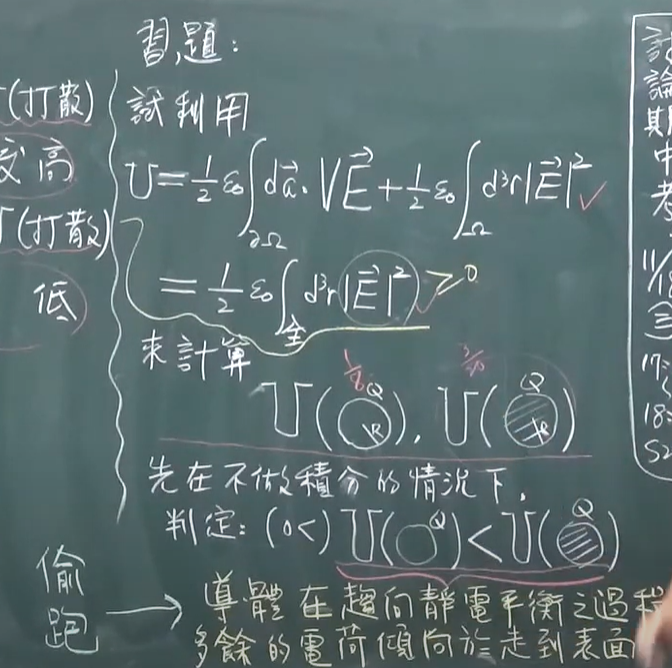 (打散)
高
(打散)
低
習題:
試利用
U=\frac{1}{2}ε₀∫_{∂Ω} d\vec{a}·V\vec{E}+\frac{1}{2}ε₀∫_{Ω} d³r|\vec{E}|² ✓
=\frac{1}{2}ε₀∫_{全} d³r|\vec{E}|² ≥0
來計算
1/8
U(Q R), U(Q R)
先在不做積分的情況下,
判定: (0<) U(Q)<U(Q)
偷跑
導體在趨向靜電平衡之過程
多餘的電荷傾向於走到表面
討論
期中考
11/18
17:
18: